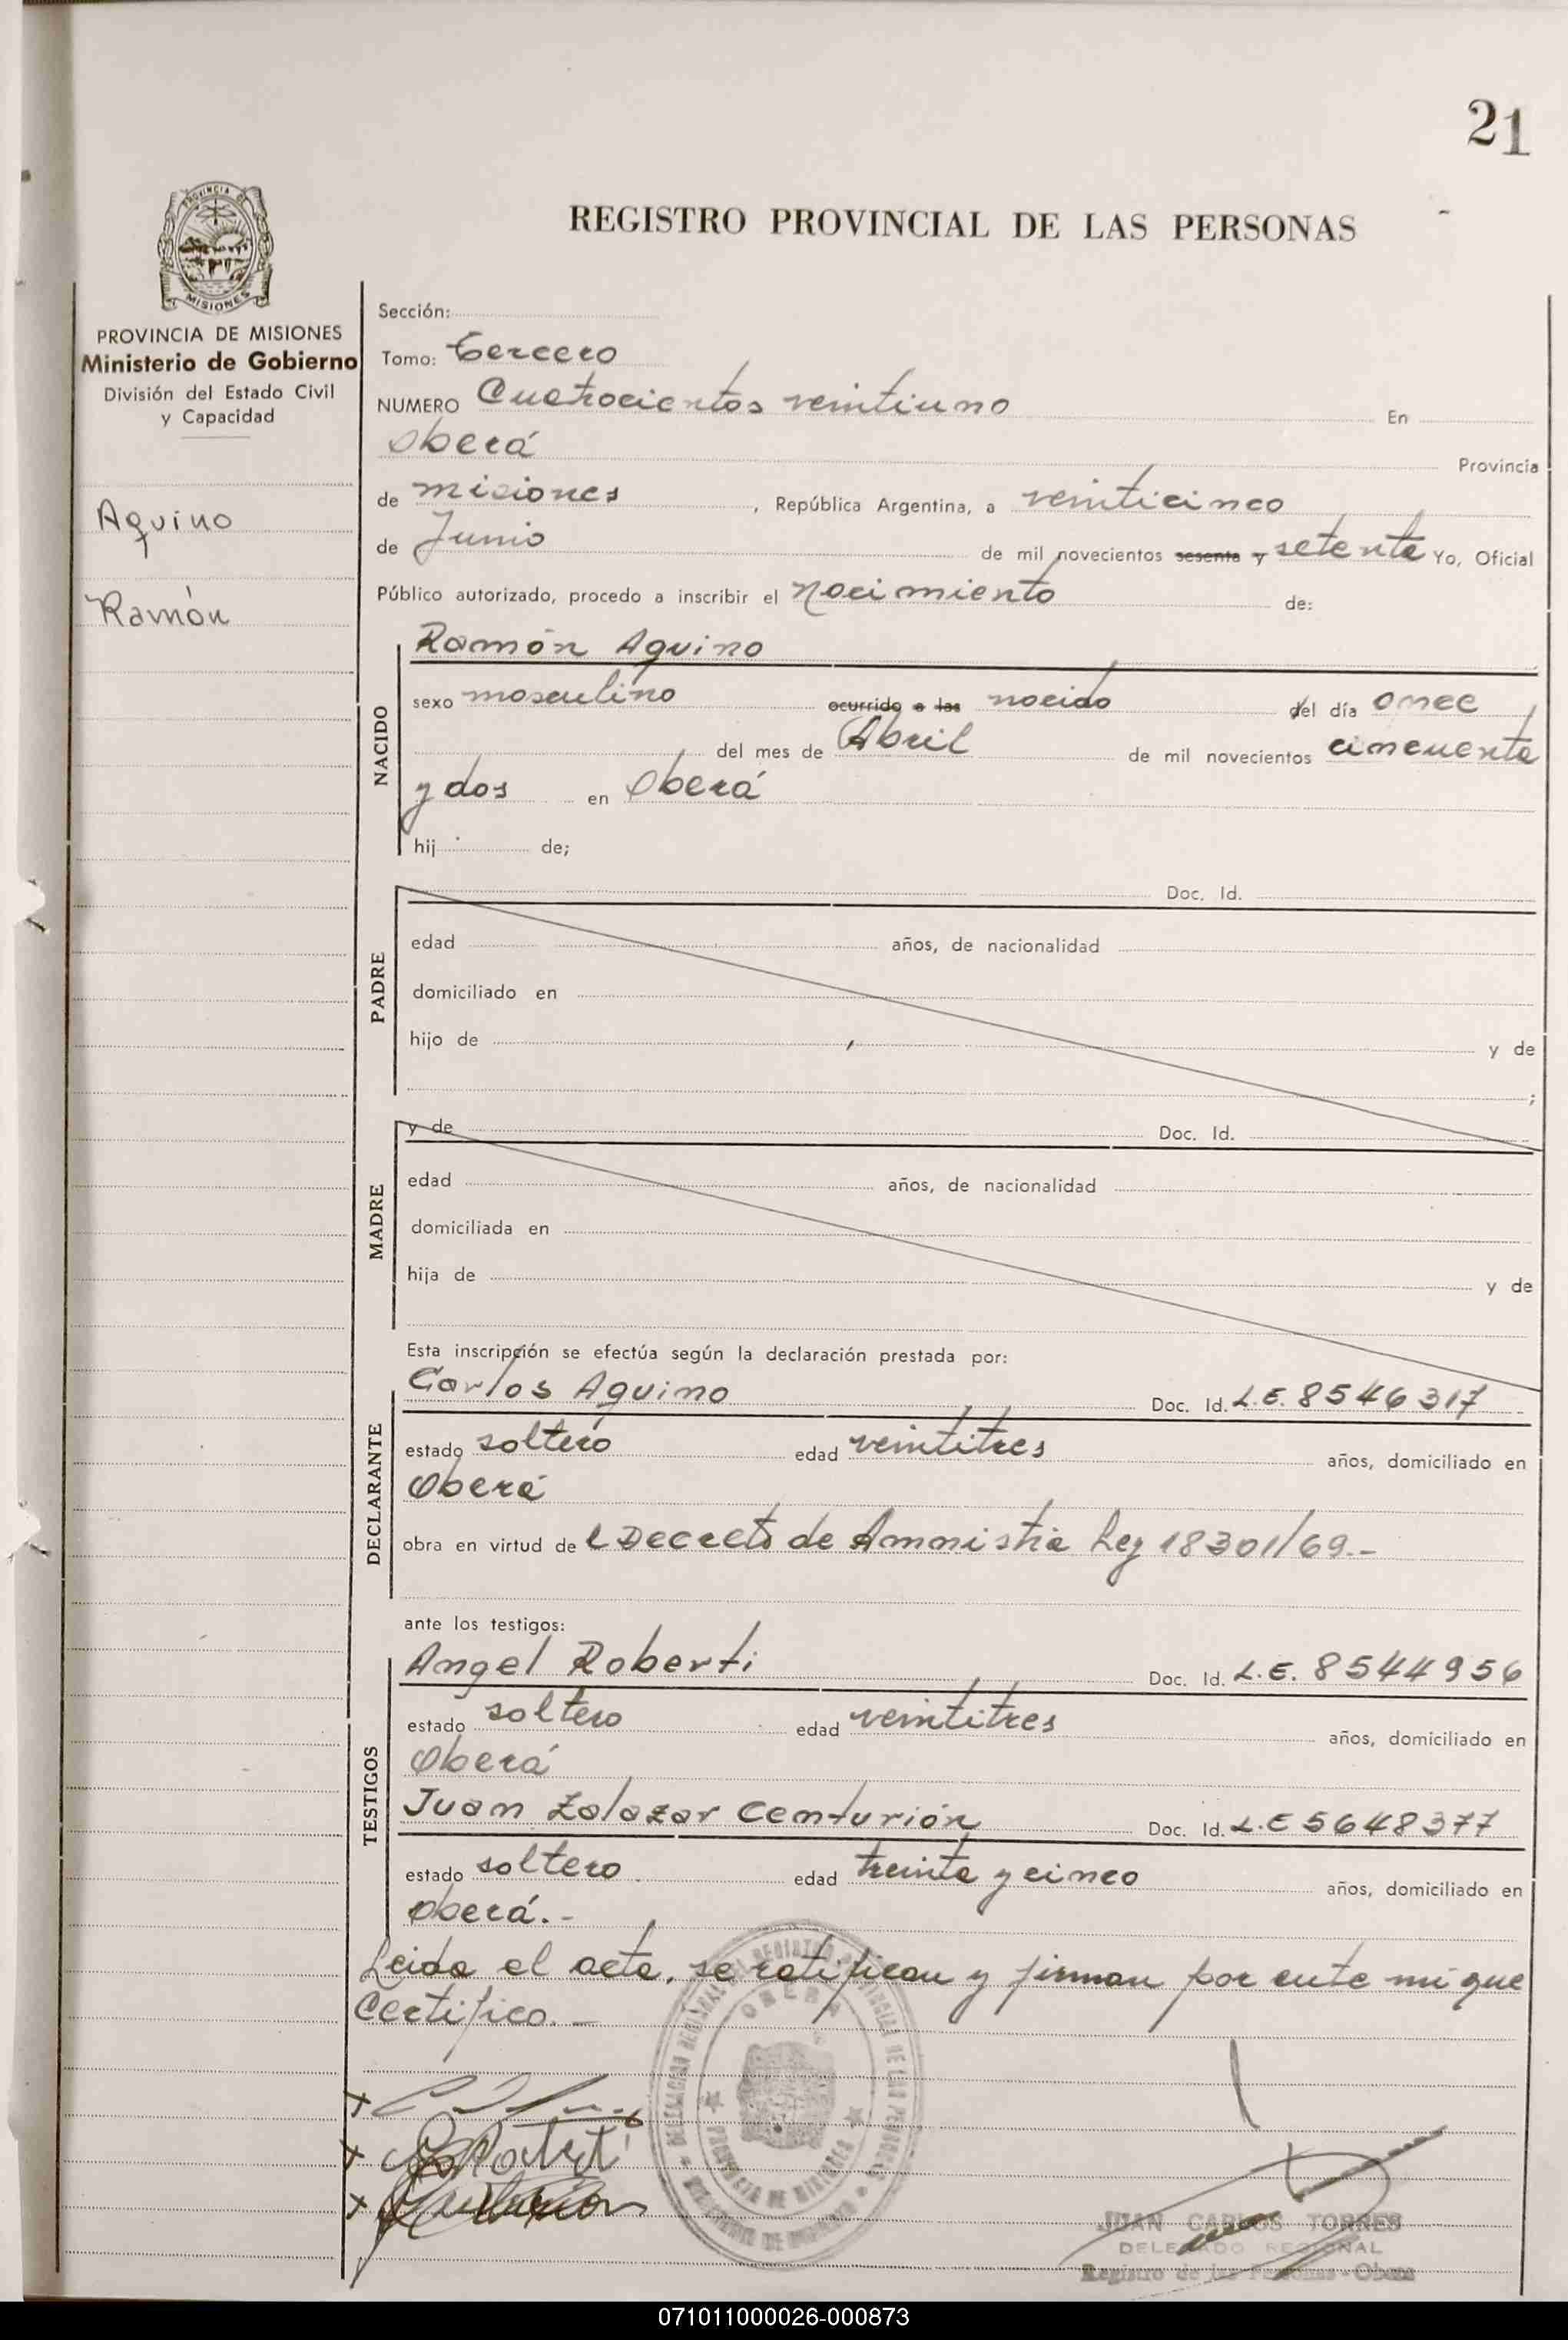 21
PROVINCIA DE
MISIONES
REGISTRO PROVINCIAL DE LAS PERSONAS
PROVINCIA DE MISIONES
Ministerio de Gobierno
División del Estado Civil
y Capacidad
Aquino
Ramón
Sección:
Tomo: tercero
NUMERO Cuatrocientos veintiuno En
Oberá Provincia
de misiones, República Argentina, a veinticinco
de Junio de mil novecientos sesenta y setenta Yo, Oficial
Público autorizado, procedo a inscribir el nacimiento de:
NACIDO
Ramón Aquino
sexo masculino ocurrido a las nacido del día once
del mes de Abril de mil novecientos cincuenta
y dos en Oberá
hij de;
PADRE
Doc. Id.
edad años, de nacionalidad
domiciliado en
hijo de y de
;
MADRE
y de Doc. Id.
edad años, de nacionalidad
domiciliada en
hija de y de
Esta inscripción se efectúa según la declaración prestada por:
DECLARANTE
Carlos Aquino Doc. Id. L.E. 8546317
estado soltero edad veintitres años, domiciliado en
Oberá
obra en virtud de l Decreto de Amnistia Ley 18301/69.-
ante los testigos:
TESTIGOS
Angel Roberti Doc. Id. L.E. 8544956
estado soltero edad veintitres años, domiciliado en
Oberá
Juan Zalazar Centurión Doc. Id. L.E 5648377
estado soltero edad treinta y cinco años, domiciliado en
oberá.-
Leida el acta, se ratifican y firman por ente mi que
Certifico.-
OBERA
PROVINCIA DE MISIONES
JUAN CARLOS TORRES
DELEGADO REGIONAL
Registro de las Personas - Oberá
071011000026-000873